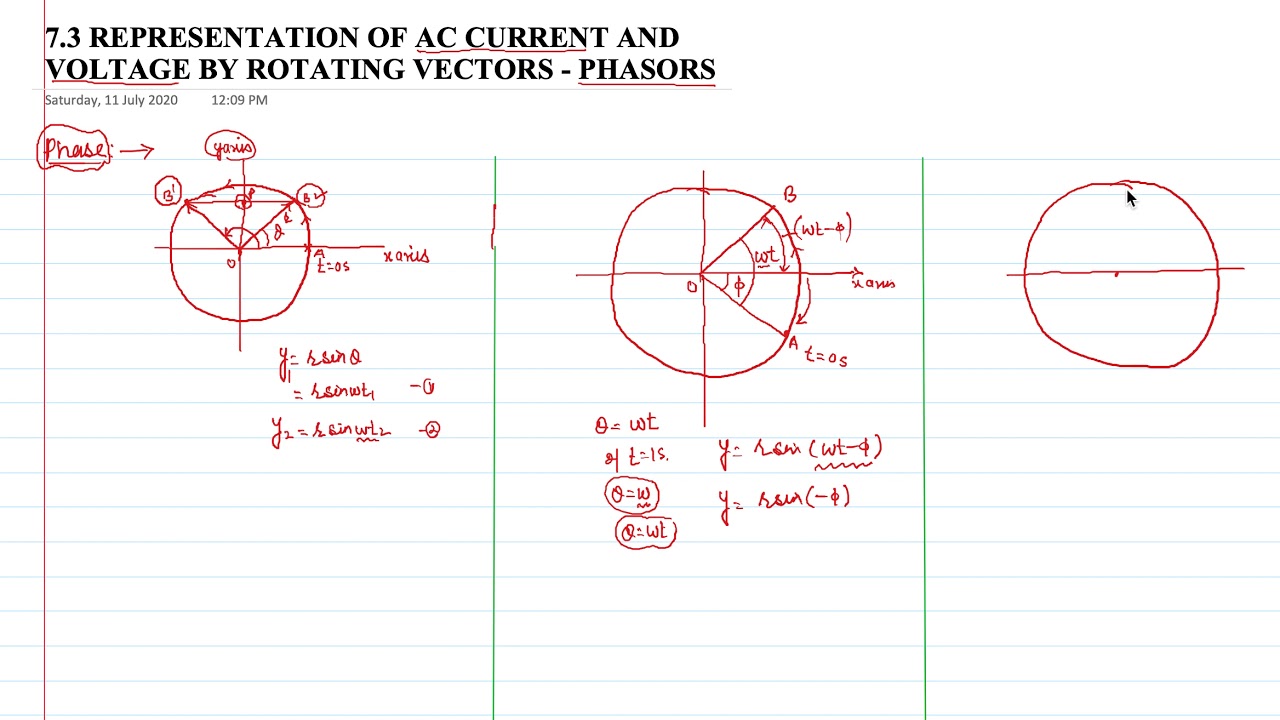 7.3 REPRESENTATION OF AC CURRENT AND
VOLTAGE BY ROTATING VECTORS - PHASORS
Saturday, 11 July 2020 12:09 PM
Phase: →
y axis
B'
P
B
θ
O
A
t=0s
x axis
y₁= r sinθ
= r sinωt₁ -①
y₂= r sinωt₂ -②
B
(ωt-ϕ)
ωt
O
ϕ
x axis
A
t=0s
θ= ωt
t=1s.
θ=ω
θ=ωt
y= r sin(ωt-ϕ)
y= r sin(-ϕ)